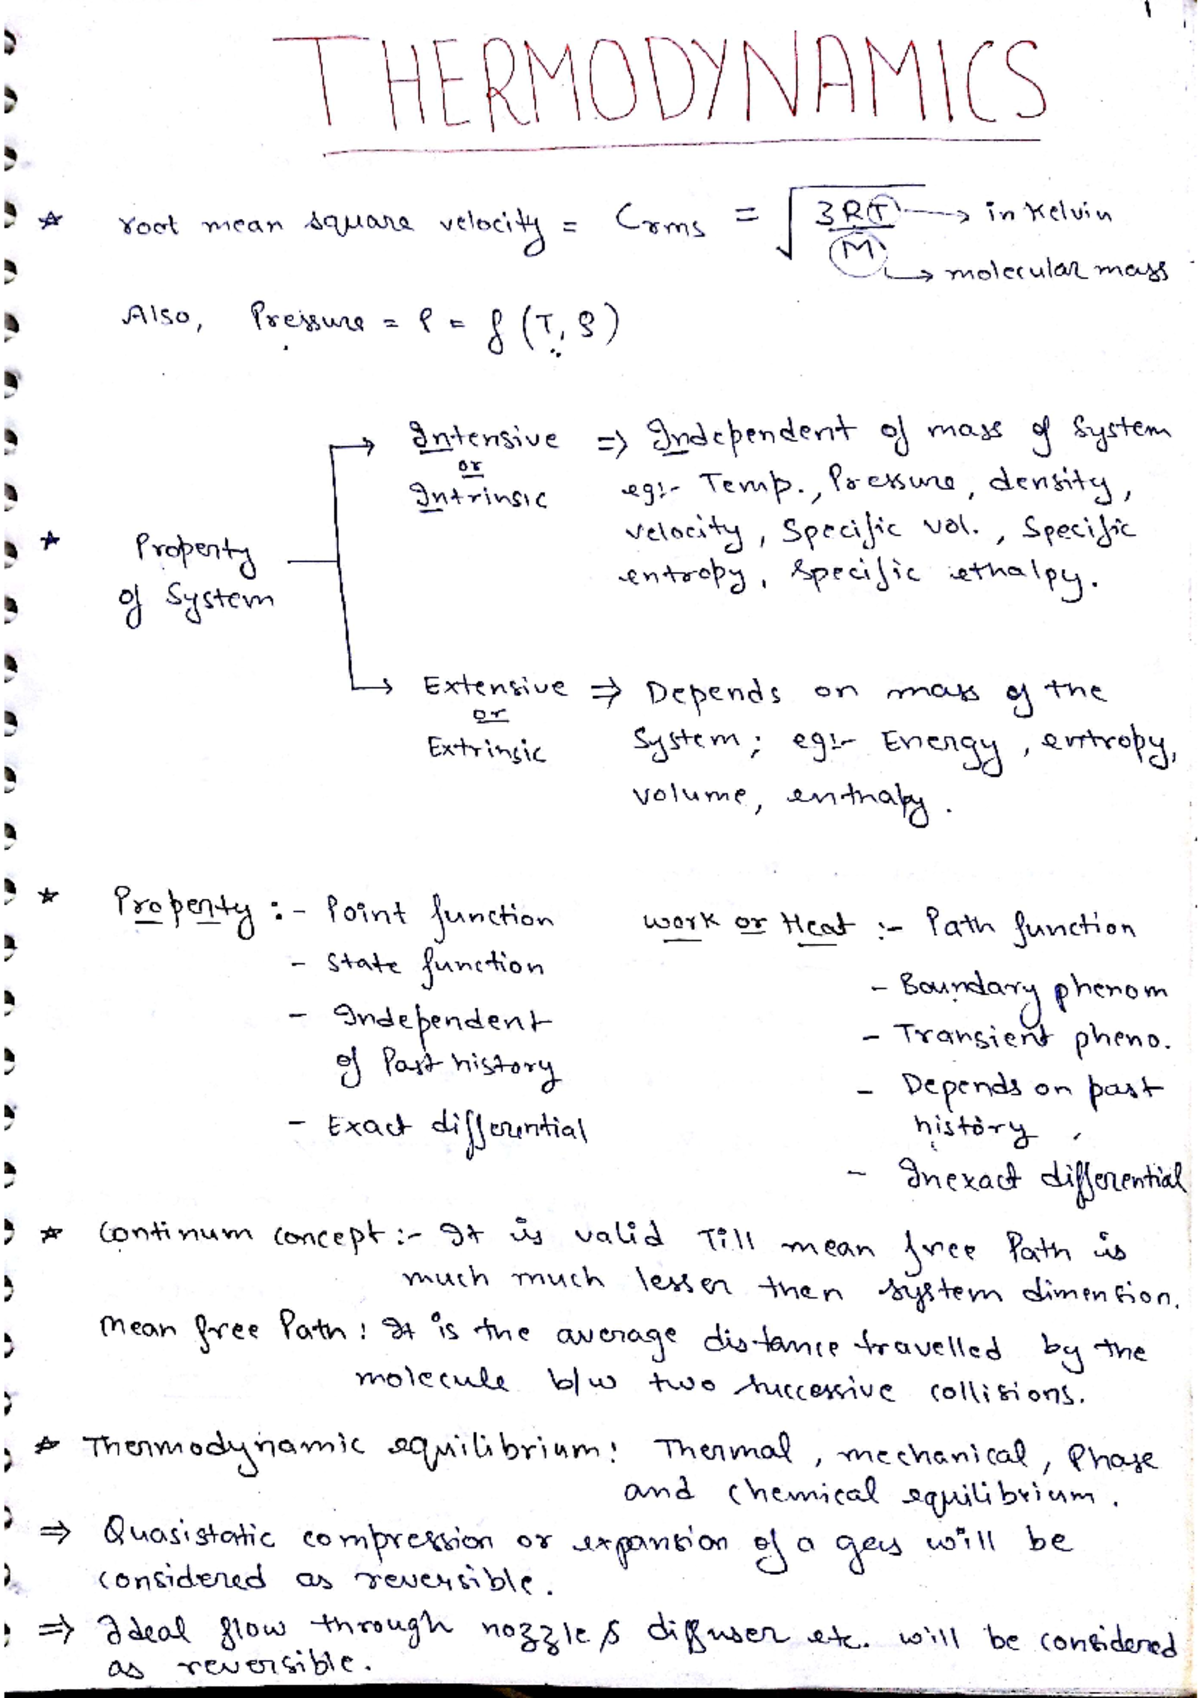 1
THERMODYNAMICS
☆ root mean square velocity = Crms = √(3RT/M) → in Kelvin
→ molecular mass
Also, Pressure = P = f (T, ρ)
Intensive ⇒ Independent of mass of System
or
Intrinsic
eg:- Temp., Pressure, density,
velocity, Specific vol., Specific
entropy, Specific ethalpy.
☆ Property
of System
Extensive ⇒ Depends on mass of the
or
Extrinsic
System; eg:- Energy, entropy,
volume, enthalpy.
☆ Property :- Point function
- State function
- Independent
of Past history
- Exact differential
work or Heat :- Path function
- Boundary phenom
- Transient pheno.
- Depends on past
history
- Inexact differential
☆ Continum concept :- It is valid Till mean free Path is
much much lesser then system dimension.
Mean free Path : It is the average distance travelled by the
molecule b/w two successive collisions.
☆ Thermodynamic equilibrium : Thermal, mechanical, Phase
and chemical equilibrium.
⇒ Quasistatic compression or expansion of a gas will be
considered as reversible.
⇒ Ideal flow through nozzle & diffuser etc. will be considered
as reversible.